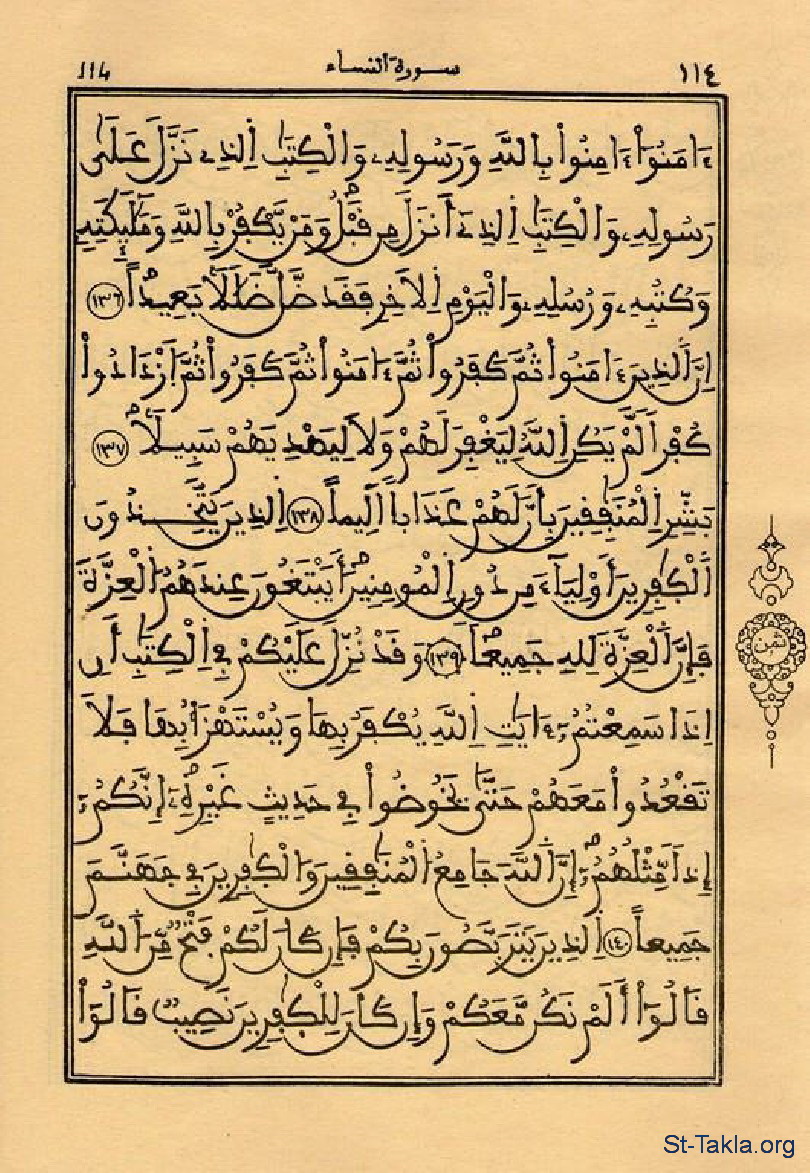 ١١٤ سورة النساء 114
ءَامَنُوٓاْ ءَامِنُواْ بِاللَّهِ وَرَسُولِهِۦ وَالْكِتَٰبِ اِلذِے نَزَّلَ عَلَىٰ
رَسُولِهِۦ وَالْكِتَٰبِ اِلذِےٓ أَنزَلَ مِن قَبْلُ وَمَنْ يَّكْفُرْ بِاللَّهِ وَمَلَٰٓئِكَتِهِۦ
وَكُتُبِهِۦ وَرُسُلِهِۦ وَالْيَوْمِ اِلَاخِرِ فَقَد ضَّلَّ ضَلَٰلاَۢ بَعِيداً ١٣٦
إِنَّ اَلذِينَ ءَامَنُواْ ثُمَّ كَفَرُواْ ثُمَّ ءَامَنُواْ ثُمَّ كَفَرُواْ ثُمَّ اَزْدَادُواْ
كُفْراً لَّمْ يَكُنِ اِللَّهُ لِيَغْفِرَ لَهُمْ وَلَا لِيَهْدِيَهُمْ سَبِيلاَۢ ١٣٧
بَشِّرِ اِلْمُنَٰفِقِينَ بِأَنَّ لَهُمْ عَذَاباً أَلِيماً ١٣٨ اِلذِينَ يَتَّخِذُونَ
اَلْكَٰفِرِينَ أَوْلِيَآءَ مِن دُونِ اِلْمُومِنِينَ أَيَبْتَغُونَ عِندَهُمُ اُلْعِزَّةَ
فَإِنَّ اَلْعِزَّةَ لِلهِ جَمِيعاً ١٣٩ وَقَدْ نُزِّلَ عَلَيْكُمْ فِے اِلْكِتَٰبِ أَنِ
اِذَا سَمِعْتُمُۥٓ ءَايَٰتِ اِللَّهِ يُكْفَرُ بِهَا وَيُسْتَهْزَأُ بِهَا فَلَا
تَقْعُدُواْ مَعَهُمْ حَتَّىٰ يَخُوضُواْ فِے حَدِيثٍ غَيْرِهِۦٓ إِنَّكُمُۥٓ
إِذاً مِّثْلُهُمُۥٓ إِنَّ اَللَّهَ جَامِعُ اُلْمُنَٰفِقِينَ وَالْكَٰفِرِينَ فِے جَهَنَّمَ
جَمِيعاً ١٤٠ اِلذِينَ يَتَرَبَّصُونَ بِكُمْ فَإِن كَانَ لَكُمْ فَتْحٌ مِّنَ اَللَّهِ
قَالُوٓاْ أَلَمْ نَكُن مَّعَكُمْ وَإِن كَانَ لِلْكَٰفِرِينَ نَصِيبٌ قَالُوٓاْ
ثمن
St-Takla.org